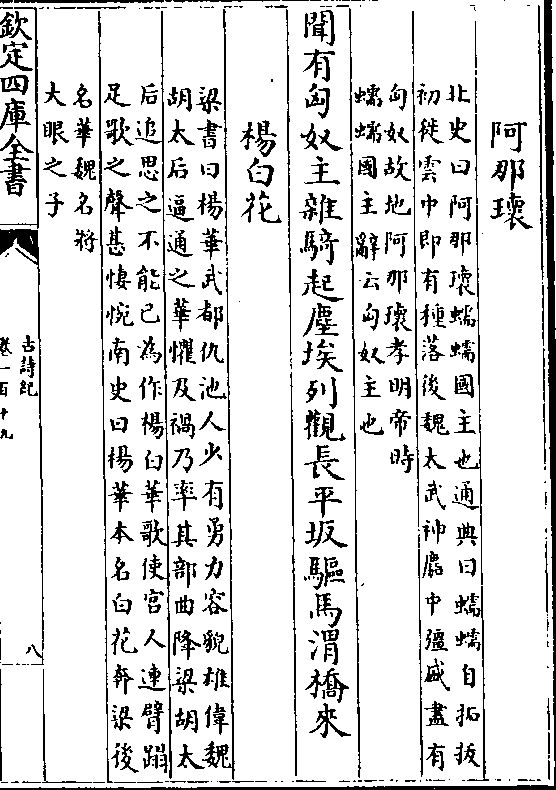 阿那瓌
北史曰阿那瓌蠕蠕國主也通典曰蠕蠕自拓拔
初徙雲中即有種落後魏太武神䴥中彊盛盡有
匈奴故地阿那瓌孝明帝時
蠕蠕國主辭云匈奴主也
聞有匈奴主雜騎起塵埃列觀長平坂驅馬渭橋來
楊白花
梁書曰楊華武都仇池人少有勇力容貌雄偉魏
胡太后逼通之華懼及禍乃率其部曲降梁胡太
后追思之不能已為作楊白華歌使宫人連臂蹋
足歌之聲甚悽惋南史曰楊華本名白花奔梁後
名華魏名將
大眼之子
欽定四庫全書
古詩紀
卷一百十九
八